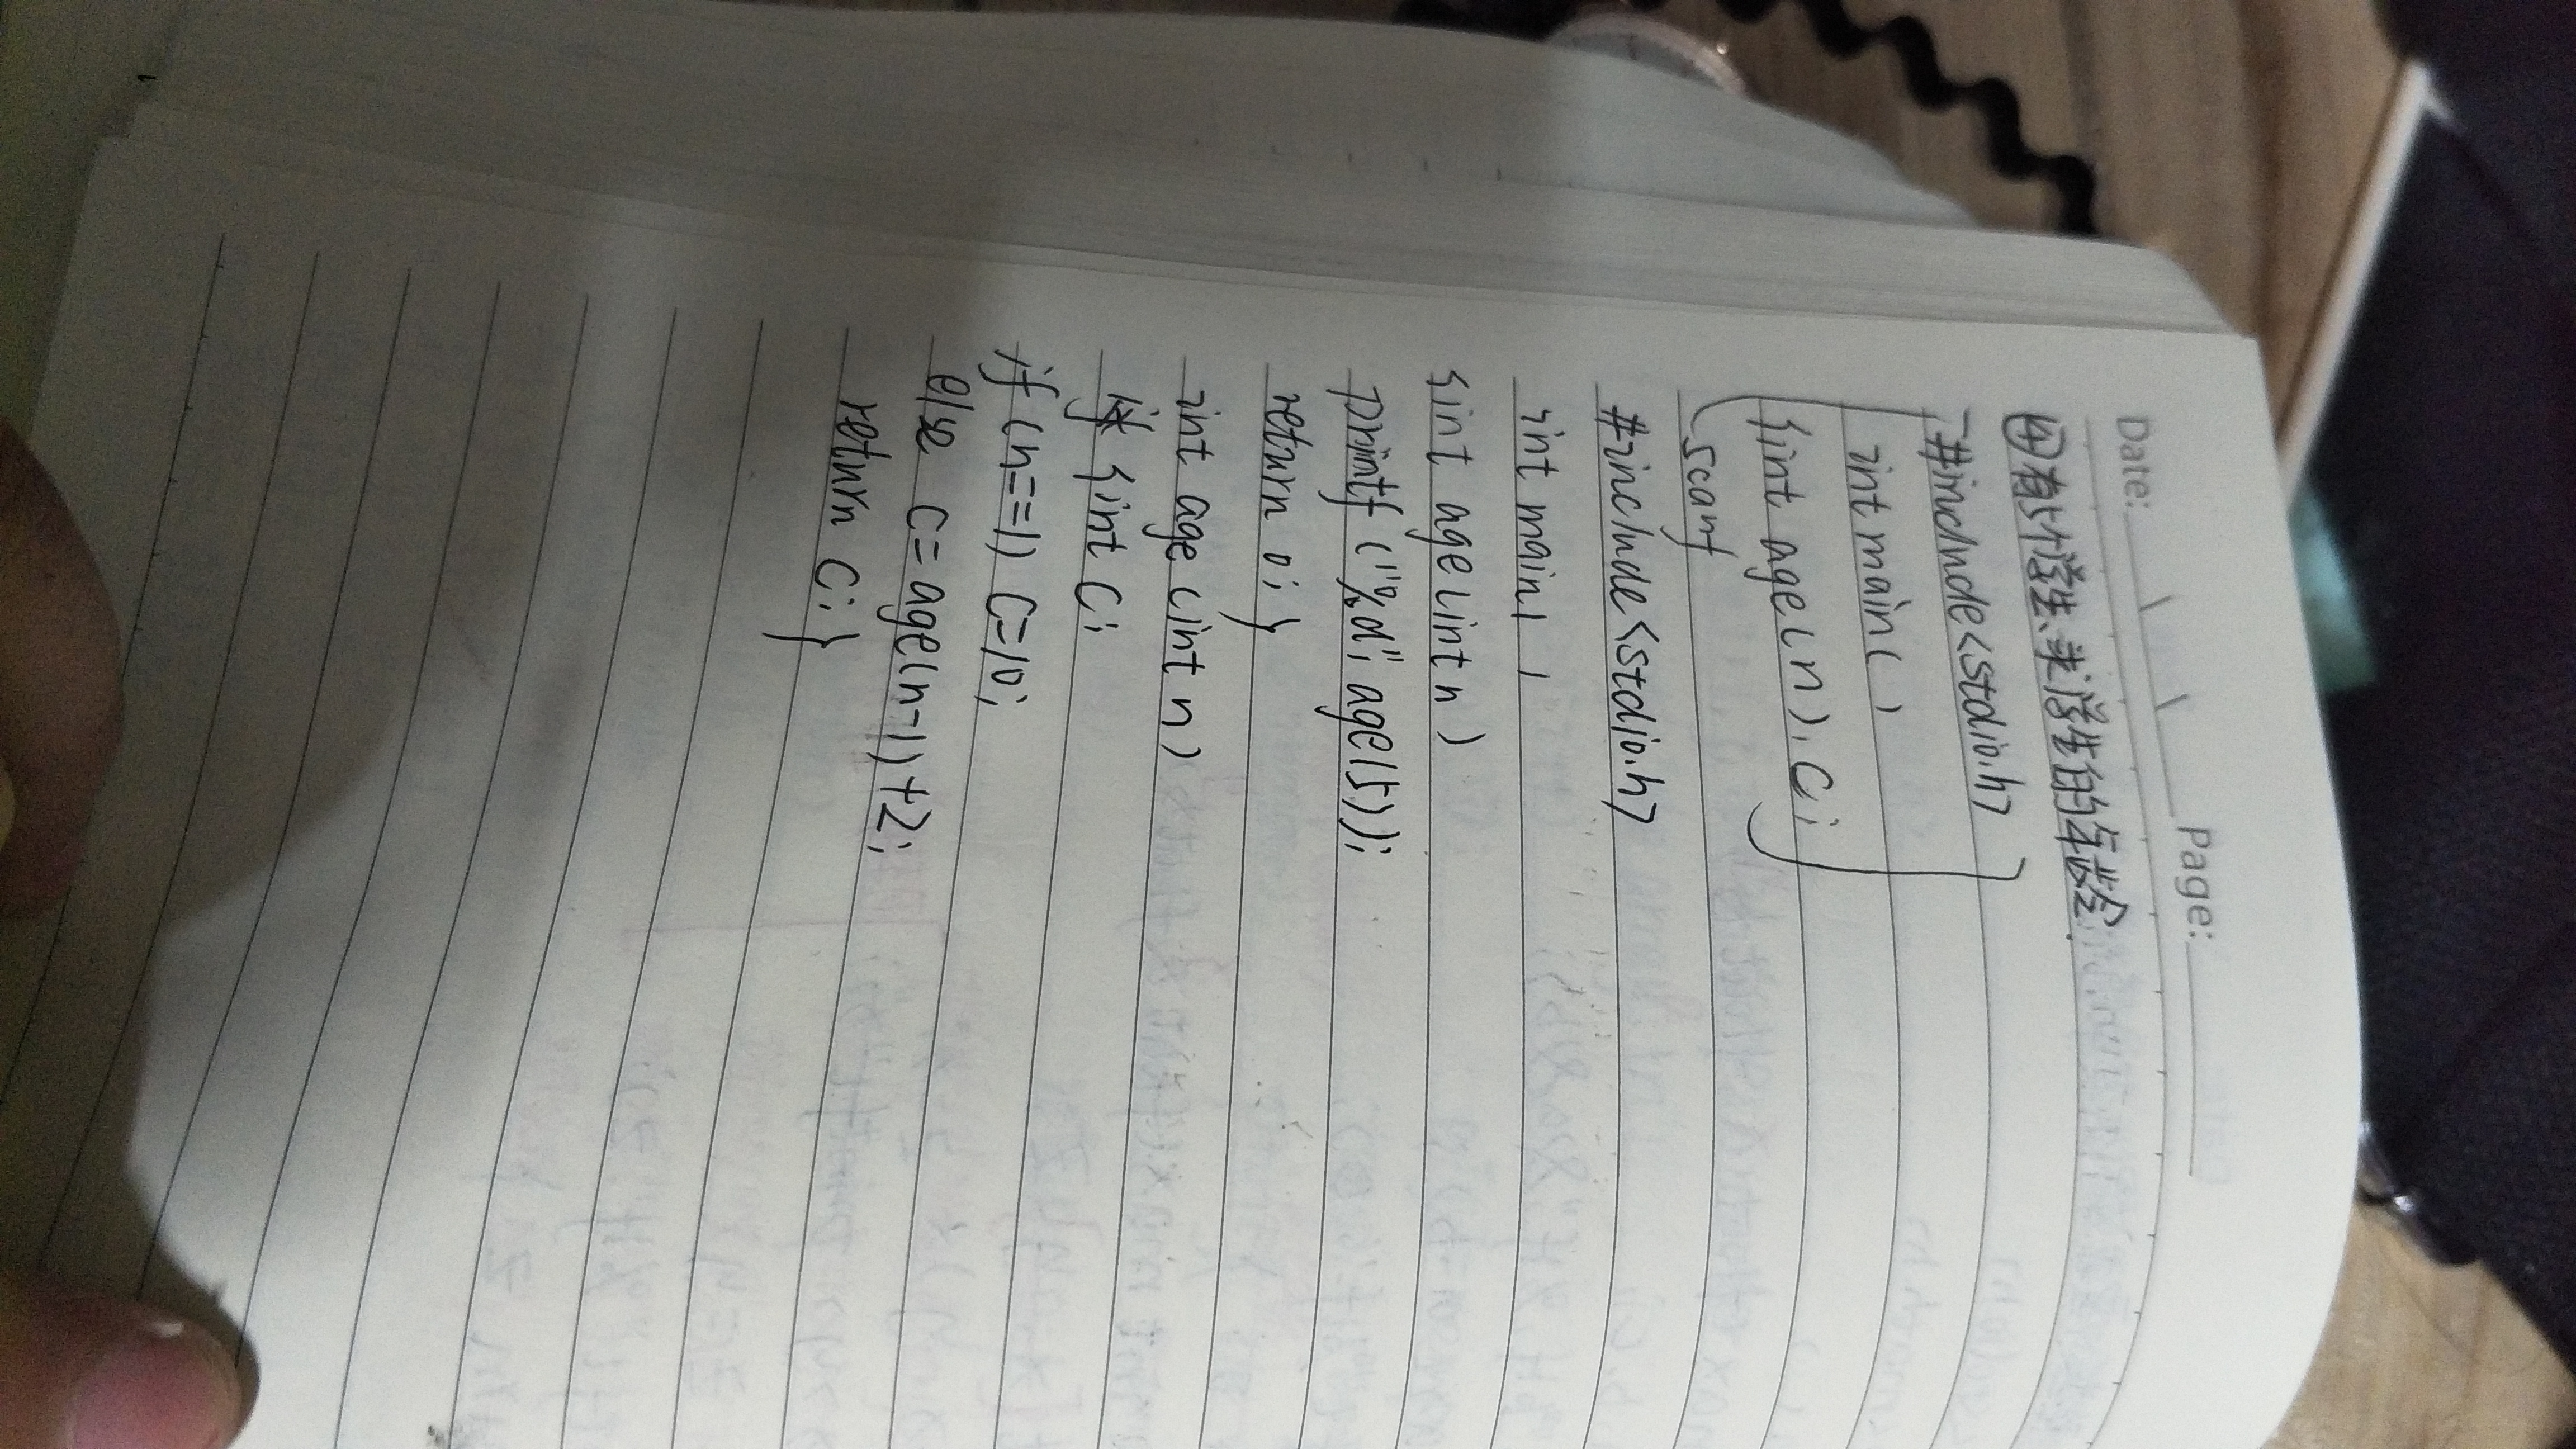 Date: Page:
④有5个学生,求学生的年龄
#include<stdio.h>
int main()
{int age(n), C;
scanf
#include<stdio.h>
int main()
{int age(int n)
printf("%d", age(5));
return 0;}
int age(int n)
{int C;
if (n==1) C=10;
else C=age(n-1)+2;
return C;}